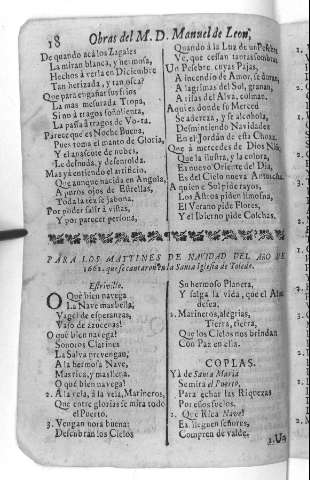 18 Obras del M. D. Manuel de Leon,
De quando acà los Zagales
La miran blanca, y hermosa,
Hechos à verla en Diziembre
Tan herizada, y tan
Que para engañar sus frios
La mas mesurada Tropa,
Si no à tragos
La passa à tragos de
Parece que es Noche Buena,
Pues toma el manto de Gloria,
Y el anascote de
Se desnuda, y desenrolda.
Mas ya entiendo el artificio,
Que aunque nacida en Angola,
A puros ojos de Estrellas,
Toda la tez le jabona.
Por poder salir à vistas,
Y por parecer persona,
Quando à la Luz de un Pesebre
Ve, que cessan tantas sombras
Un Pesebre, cuyas Pajas,
A incendio de Amor, se doran,
A lagrimas del Sol, granan,
A risas del Alva,
Aqui es donde su Merced
Se adereza, y se alcohola,
Desmintiendo Navidades
En el Jordàn de esta Choza.
Que à mercedes de Dios Niño,
Que la ilustra, y la colora,
Es nuevo Oriente del Dia,
Es del Cielo nueva Antorcha.
A quien el Sol pide rayos,
Los Astros piden limosna,
El Verano pide Flores,
Y el Invierno pide Colchas.
PARA LOS MAYTINES DE NAVIDAD DEL AÑO DE
1661. que se cantaron en la Santa Iglesia de Toledo.
Estrivillo.
O Què bien navega
La Nave mas bella,
Vagel de esperanças,
Vaso de azucenas!
O què bien navega!
Sonoros Clarines
La Salva prevengan,
A la hermosa Nave,
Mas rica, y mas llena.
O què bien navega!
2. A la vela, à la vela, Marineros,
Que entre glorias se mira todo
el Puerto.
3. Vengan norabuena:
Descubran los Cielos
Su hermoso Planeta,
Y salga la vida, que el Alma
desea,
1. Marineros, alegrias,
Tierra, tierra,
Que los Cielos nos brindan
Con Paz en ella.
COPLAS.
YA de Santa Maria
Se mira el Puerto,
Para echar las Riquezas
Por essos suelos.
2. Què Rica Nave!
Es, lleguen señores,
Compren de valde.
1. Un